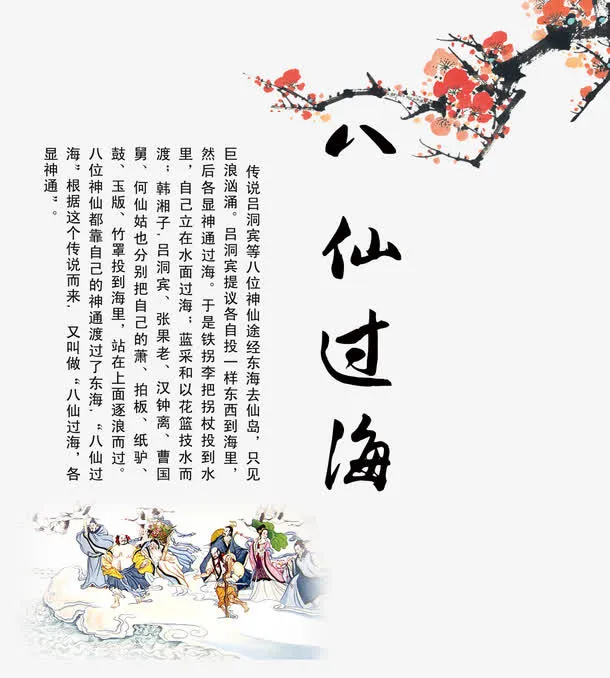 八仙过海
传说吕洞宾等八位神仙途经东海去仙岛，只见
巨浪汹涌。吕洞宾提议各自投一样东西到海里，
然后各显神通过海。于是铁拐李把拐杖投到水
里，自己立在水面过海；蓝采和以花篮技水而
渡；韩湘子,吕洞宾、张果老、汉钟离、曹国
舅、何仙姑也分别把自己的萧、拍板、纸驴、
鼓、玉版、竹罩投到海里，站在上面逐浪而过。
八位神仙都靠自己的神通渡过了东海.“八仙过
海”根据这个传说而来. 又叫做“八仙过海，各
显神通”。